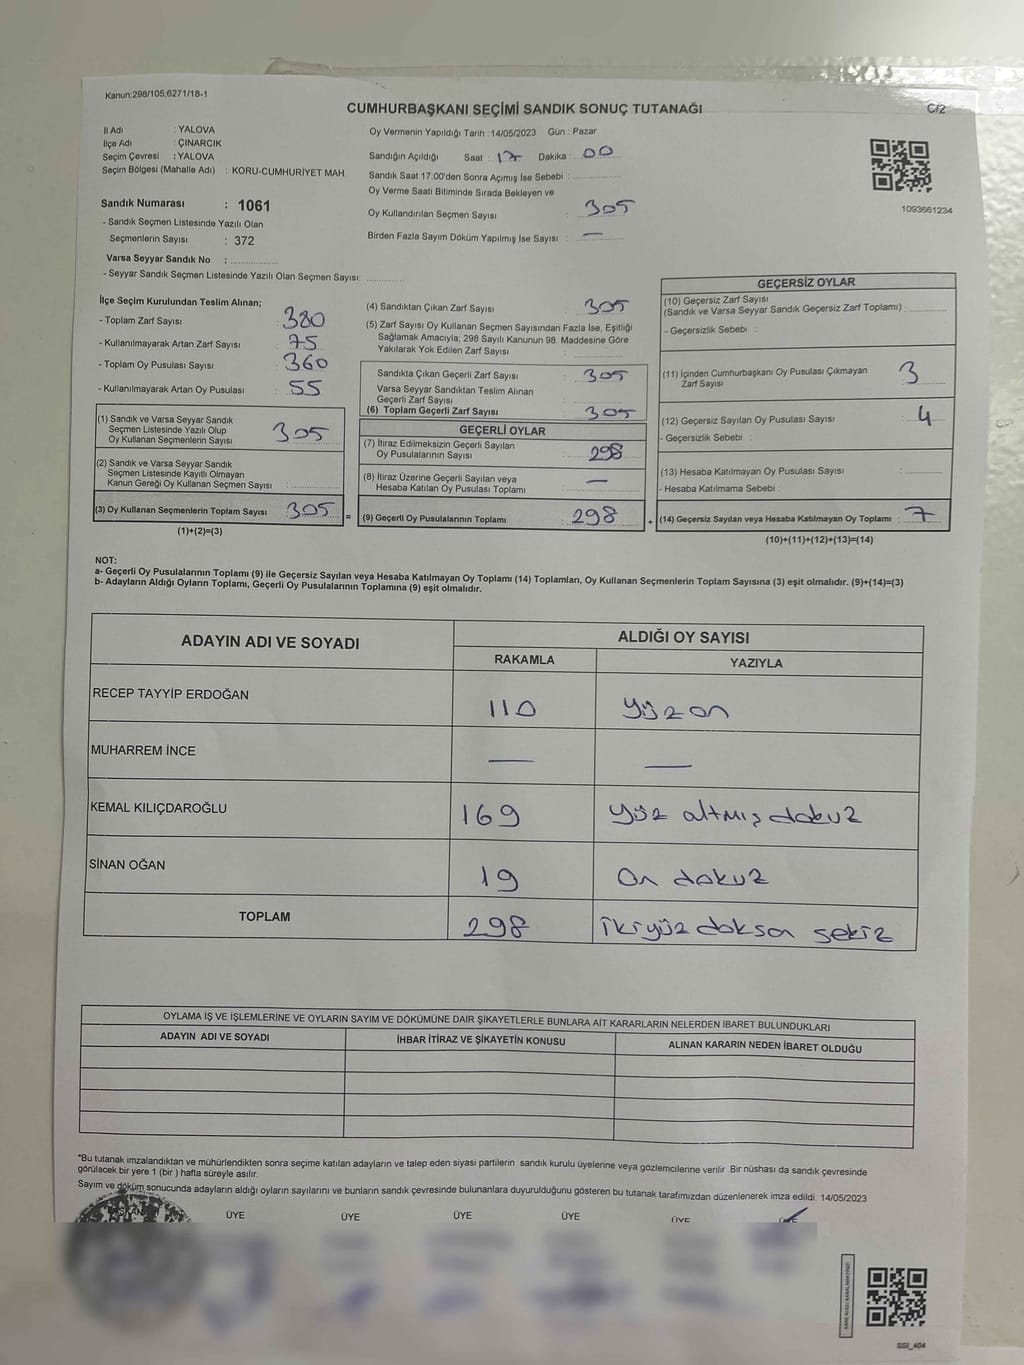 Kanun:298/105;6271/18-1
CUMHURBAŞKANI SEÇİMİ SANDIK SONUÇ TUTANAĞI
C/2
İl Adı : YALOVA
İlçe Adı : ÇINARCIK
Seçim Çevresi : YALOVA
Seçim Bölgesi (Mahalle Adı) : KORU-CUMHURİYET MAH
Sandık Numarası : 1061
- Sandık Seçmen Listesinde Yazılı Olan
Seçmenlerin Sayısı : 372
Varsa Seyyar Sandık No :
- Seyyar Sandık Seçmen Listesinde Yazılı Olan Seçmen Sayısı:
Oy Vermenin Yapıldığı Tarih :14/05/2023 Gün : Pazar
Sandığın Açıldığı Saat : 17 Dakika : 00
Sandık Saat 17:00'den Sonra Açımış İse Sebebi :
Oy Verme Saati Bitiminde Sırada Bekleyen ve
Oy Kullandırılan Seçmen Sayısı : 305
Birden Fazla Sayım Döküm Yapılmış İse Sayısı : —
1093661234
İlçe Seçim Kurulundan Teslim Alınan;
- Toplam Zarf Sayısı : 380
- Kullanılmayarak Artan Zarf Sayısı : 75
- Toplam Oy Pusulası Sayısı : 360
- Kullanılmayarak Artan Oy Pusulası : 55
(1) Sandık ve Varsa Seyyar Sandık
Seçmen Listesinde Yazılı Olup
Oy Kullanan Seçmenlerin Sayısı : 305
(2) Sandık ve Varsa Seyyar Sandık
Seçmen Listesinde Kayıtlı Olmayan
Kanun Gereği Oy Kullanan Seçmen Sayısı :
(3) Oy Kullanan Seçmenlerin Toplam Sayısı : 305 =
(1)+(2)=(3)
(4) Sandıktan Çıkan Zarf Sayısı : 305
(5) Zarf Sayısı Oy Kullanan Seçmen Sayısından Fazla İse, Eşitliği
Sağlamak Amacıyla; 298 Sayılı Kanunun 98. Maddesine Göre
Yakılarak Yok Edilen Zarf Sayısı :
Sandıkta Çıkan Geçerli Zarf Sayısı : 305
Varsa Seyyar Sandıktan Teslim Alınan
Geçerli Zarf Sayısı :
(6) Toplam Geçerli Zarf Sayısı : 305
GEÇERLİ OYLAR
(7) İtiraz Edilmeksizin Geçerli Sayılan
Oy Pusulalarının Sayısı : 298
(8) İtiraz Üzerine Geçerli Sayılan veya
Hesaba Katılan Oy Pusulası Toplamı : —
(9) Geçerli Oy Pusulalarının Toplamı : 298 +
GEÇERSİZ OYLAR
(10) Geçersiz Zarf Sayısı
(Sandık ve Varsa Seyyar Sandık Geçersiz Zarf Toplamı) :
- Geçersizlik Sebebi :
(11) İçinden Cumhurbaşkanı Oy Pusulası Çıkmayan
Zarf Sayısı : 3
(12) Geçersiz Sayılan Oy Pusulası Sayısı : 4
- Geçersizlik Sebebi :
(13) Hesaba Katılmayan Oy Pusulası Sayısı :
- Hesaba Katılmama Sebebi :
(14) Geçersiz Sayılan veya Hesaba Katılmayan Oy Toplamı : 7
(10)+(11)+(12)+(13)=(14)
NOT:
a- Geçerli Oy Pusulalarının Toplamı (9) ile Geçersiz Sayılan veya Hesaba Katılmayan Oy Toplamı (14) Toplamları, Oy Kullanan Seçmenlerin Toplam Sayısına (3) eşit olmalıdır. (9)+(14)=(3)
b- Adayların Aldığı Oyların Toplamı, Geçerli Oy Pusulalarının Toplamına (9) eşit olmalıdır.
ADAYIN ADI VE SOYADI
ALDIĞI OY SAYISI
RAKAMLA YAZIYLA
RECEP TAYYİP ERDOĞAN 110 yüz on
MUHARREM İNCE — —
KEMAL KILIÇDAROĞLU 169 yüz altmış dokuz
SİNAN OĞAN 19 On dokuz
TOPLAM 298 ikiyüz doksan sekiz
OYLAMA İŞ VE İŞLEMLERİNE VE OYLARIN SAYIM VE DÖKÜMÜNE DAİR ŞİKAYETLERLE BUNLARA AİT KARARLARIN NELERDEN İBARET BULUNDUKLARI
ADAYIN ADI VE SOYADI İHBAR İTİRAZ VE ŞİKAYETİN KONUSU ALINAN KARARIN NEDEN İBARET OLDUĞU
*Bu tutanak imzalandıktan ve mühürlendikten sonra seçime katılan adayların ve talep eden siyasi partilerin sandık kurulu üyelerine veya gözlemcilerine verilir. Bir nüshası da sandık çevresinde
görülecek bir yere 1 (bir ) hafta süreyle asılır.
Sayım ve döküm sonucunda adayların aldığı oyların sayılarını ve bunların sandık çevresinde bulunanlara duyurulduğunu gösteren bu tutanak tarafımızdan düzenlenerek imza edildi. 14/05/2023
ÜYE ÜYE ÜYE ÜYE ÜYE
SSI_404